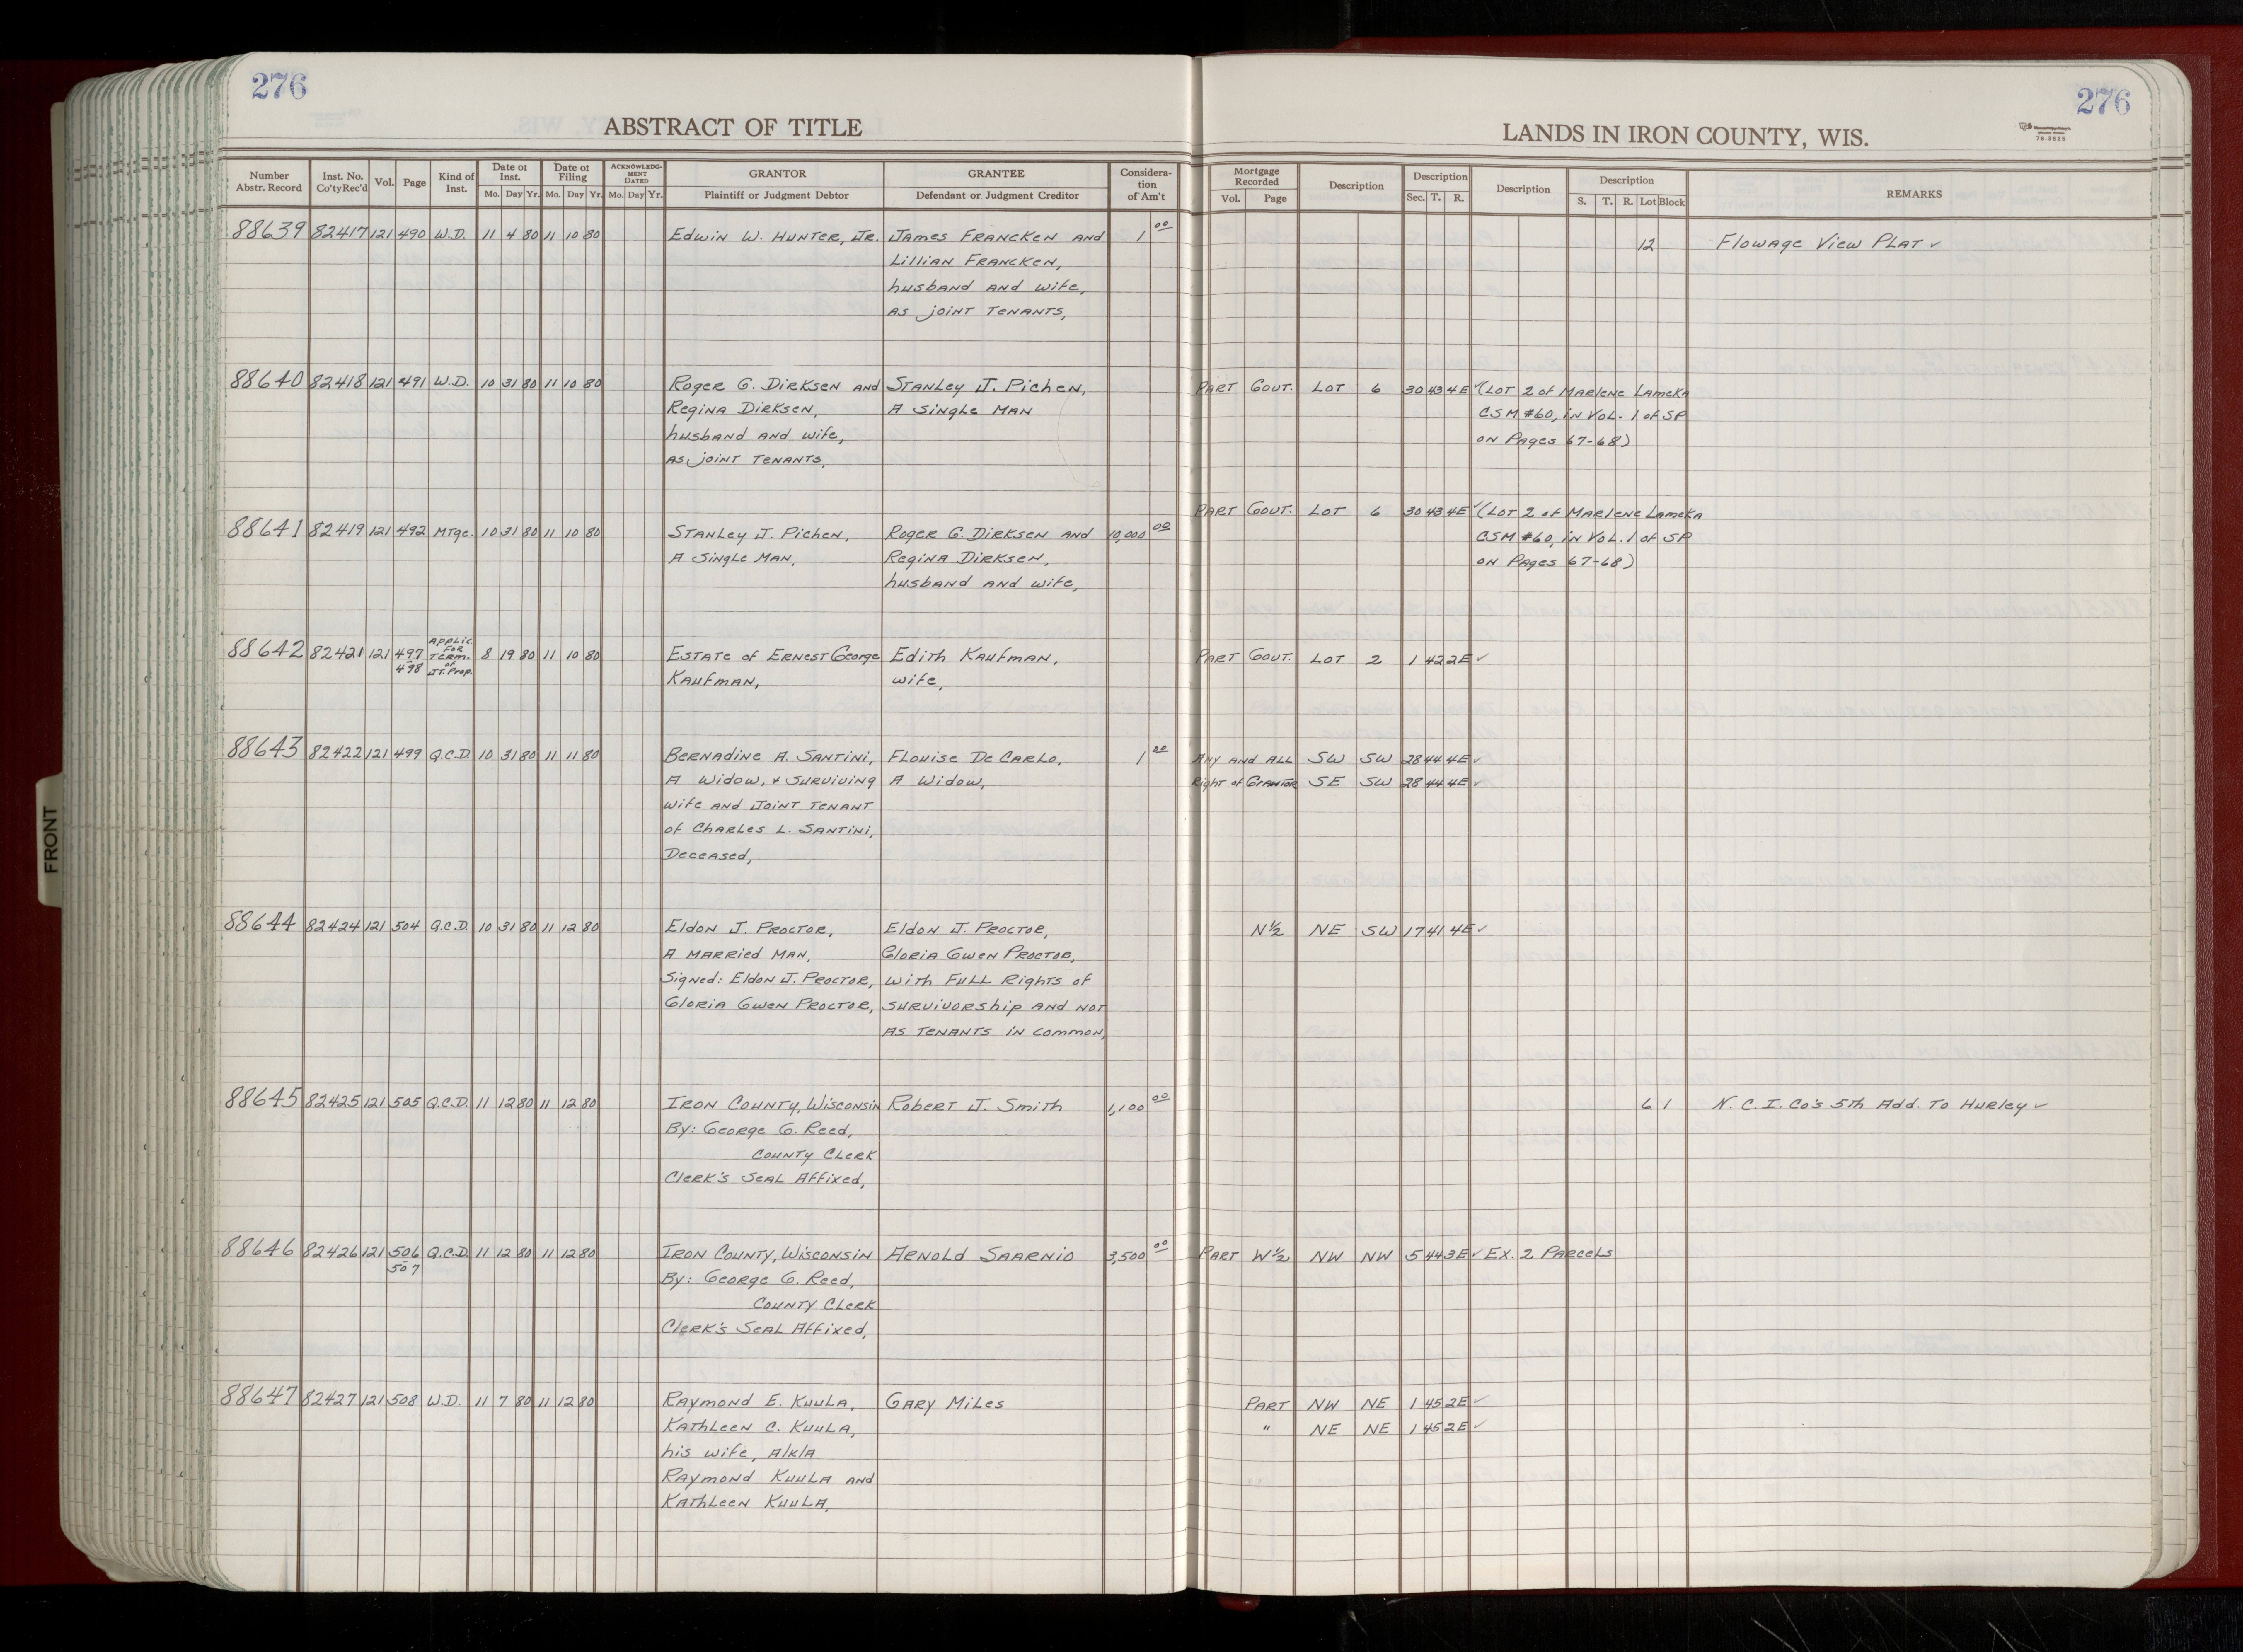 276
276
ABSTRACT OF TITLE
LANDS IN IRON COUNTY, WIS.
Number Abstr. Record | Inst. No. Co'ty Rec'd | Vol. | Page | Kind of Inst. | Date of Inst. Mo. Day Yr. | Date of Filing Mo. Day Yr. | ACKNOWLEDGMENT DATED Mo. Day Yr. | GRANTOR Plaintiff or Judgment Debtor | GRANTEE Defendant or Judgment Creditor | Consideration of Am't | Mortgage Recorded Vol. Page | Description | Description Sec. T. R. | Description | Description S. T. R. Lot Block | REMARKS
88639 82417 121 490 W.D. 11 4 80 11 10 80 Edwin W. Hunter, Jr. James Francken and 1 00 12 Flowage View Plat ✓
Lillian Francken,
husband and wife,
as joint tenants,
88640 82418 121 491 W.D. 10 31 80 11 10 80 Roger G. Dirksen and Stanley J. Pichen, Part Gout. Lot 6 30 43 4E ✓ (Lot 2 of Marlene Lameka
Regina Dirksen, A Single Man CSM #60, in Vol. 1 of SP
husband and wife, on Pages 67-68)
as joint tenants,
Part Gout. Lot 6 30 43 4E ✓ (Lot 2 of Marlene Lameka
88641 82419 121 492 Mtge. 10 31 80 11 10 80 Stanley J. Pichen, Roger G. Dirksen and 10,000 00 CSM #60, in Vol. 1 of SP
A Single Man, Regina Dirksen, on Pages 67-68)
husband and wife,
88642 82421 121 497-498 Applic. for Term. of Jt. Prop. 8 19 80 11 10 80 Estate of Ernest George Edith Kaufman, Part Gout. Lot 2 1 42 2E ✓
Kaufman, wife,
88643 82422 121 499 Q.C.D. 10 31 80 11 11 80 Bernadine A. Santini, Flouise De Carlo, 1 00 Any and all SW SW 28 44 4E ✓
A Widow, & surviving A Widow, Right of Grantor SE SW 28 44 4E ✓
wife and joint tenant
of Charles L. Santini,
Deceased,
88644 82424 121 504 Q.C.D. 10 31 80 11 12 80 Eldon J. Proctor, Eldon J. Proctor, N½ NE SW 17 41 4E ✓
A married man, Gloria Gwen Proctor,
Signed: Eldon J. Proctor, with full rights of
Gloria Gwen Proctor, survivorship and not
as tenants in common,
88645 82425 121 505 Q.C.D. 11 12 80 11 12 80 Iron County, Wisconsin Robert J. Smith 1,100 00 6 1 N. C. I. Co's 5th Add. to Hurley ✓
By: George G. Reed,
County Clerk
Clerk's Seal Affixed,
88646 82426 121 506-507 Q.C.D. 11 12 80 11 12 80 Iron County, Wisconsin Arnold Saarnio 3,500 00 Part W½ NW NW 5 44 3E ✓ Ex. 2 Parcels
By: George G. Reed,
County Clerk
Clerk's Seal Affixed,
88647 82427 121 508 W.D. 11 7 80 11 12 80 Raymond E. Kuula, Gary Miles Part NW NE 1 45 2E ✓
Kathleen C. Kuula, " NE NE 1 45 2E ✓
his wife, a/k/a
Raymond Kuula and
Kathleen Kuula,
FRONT